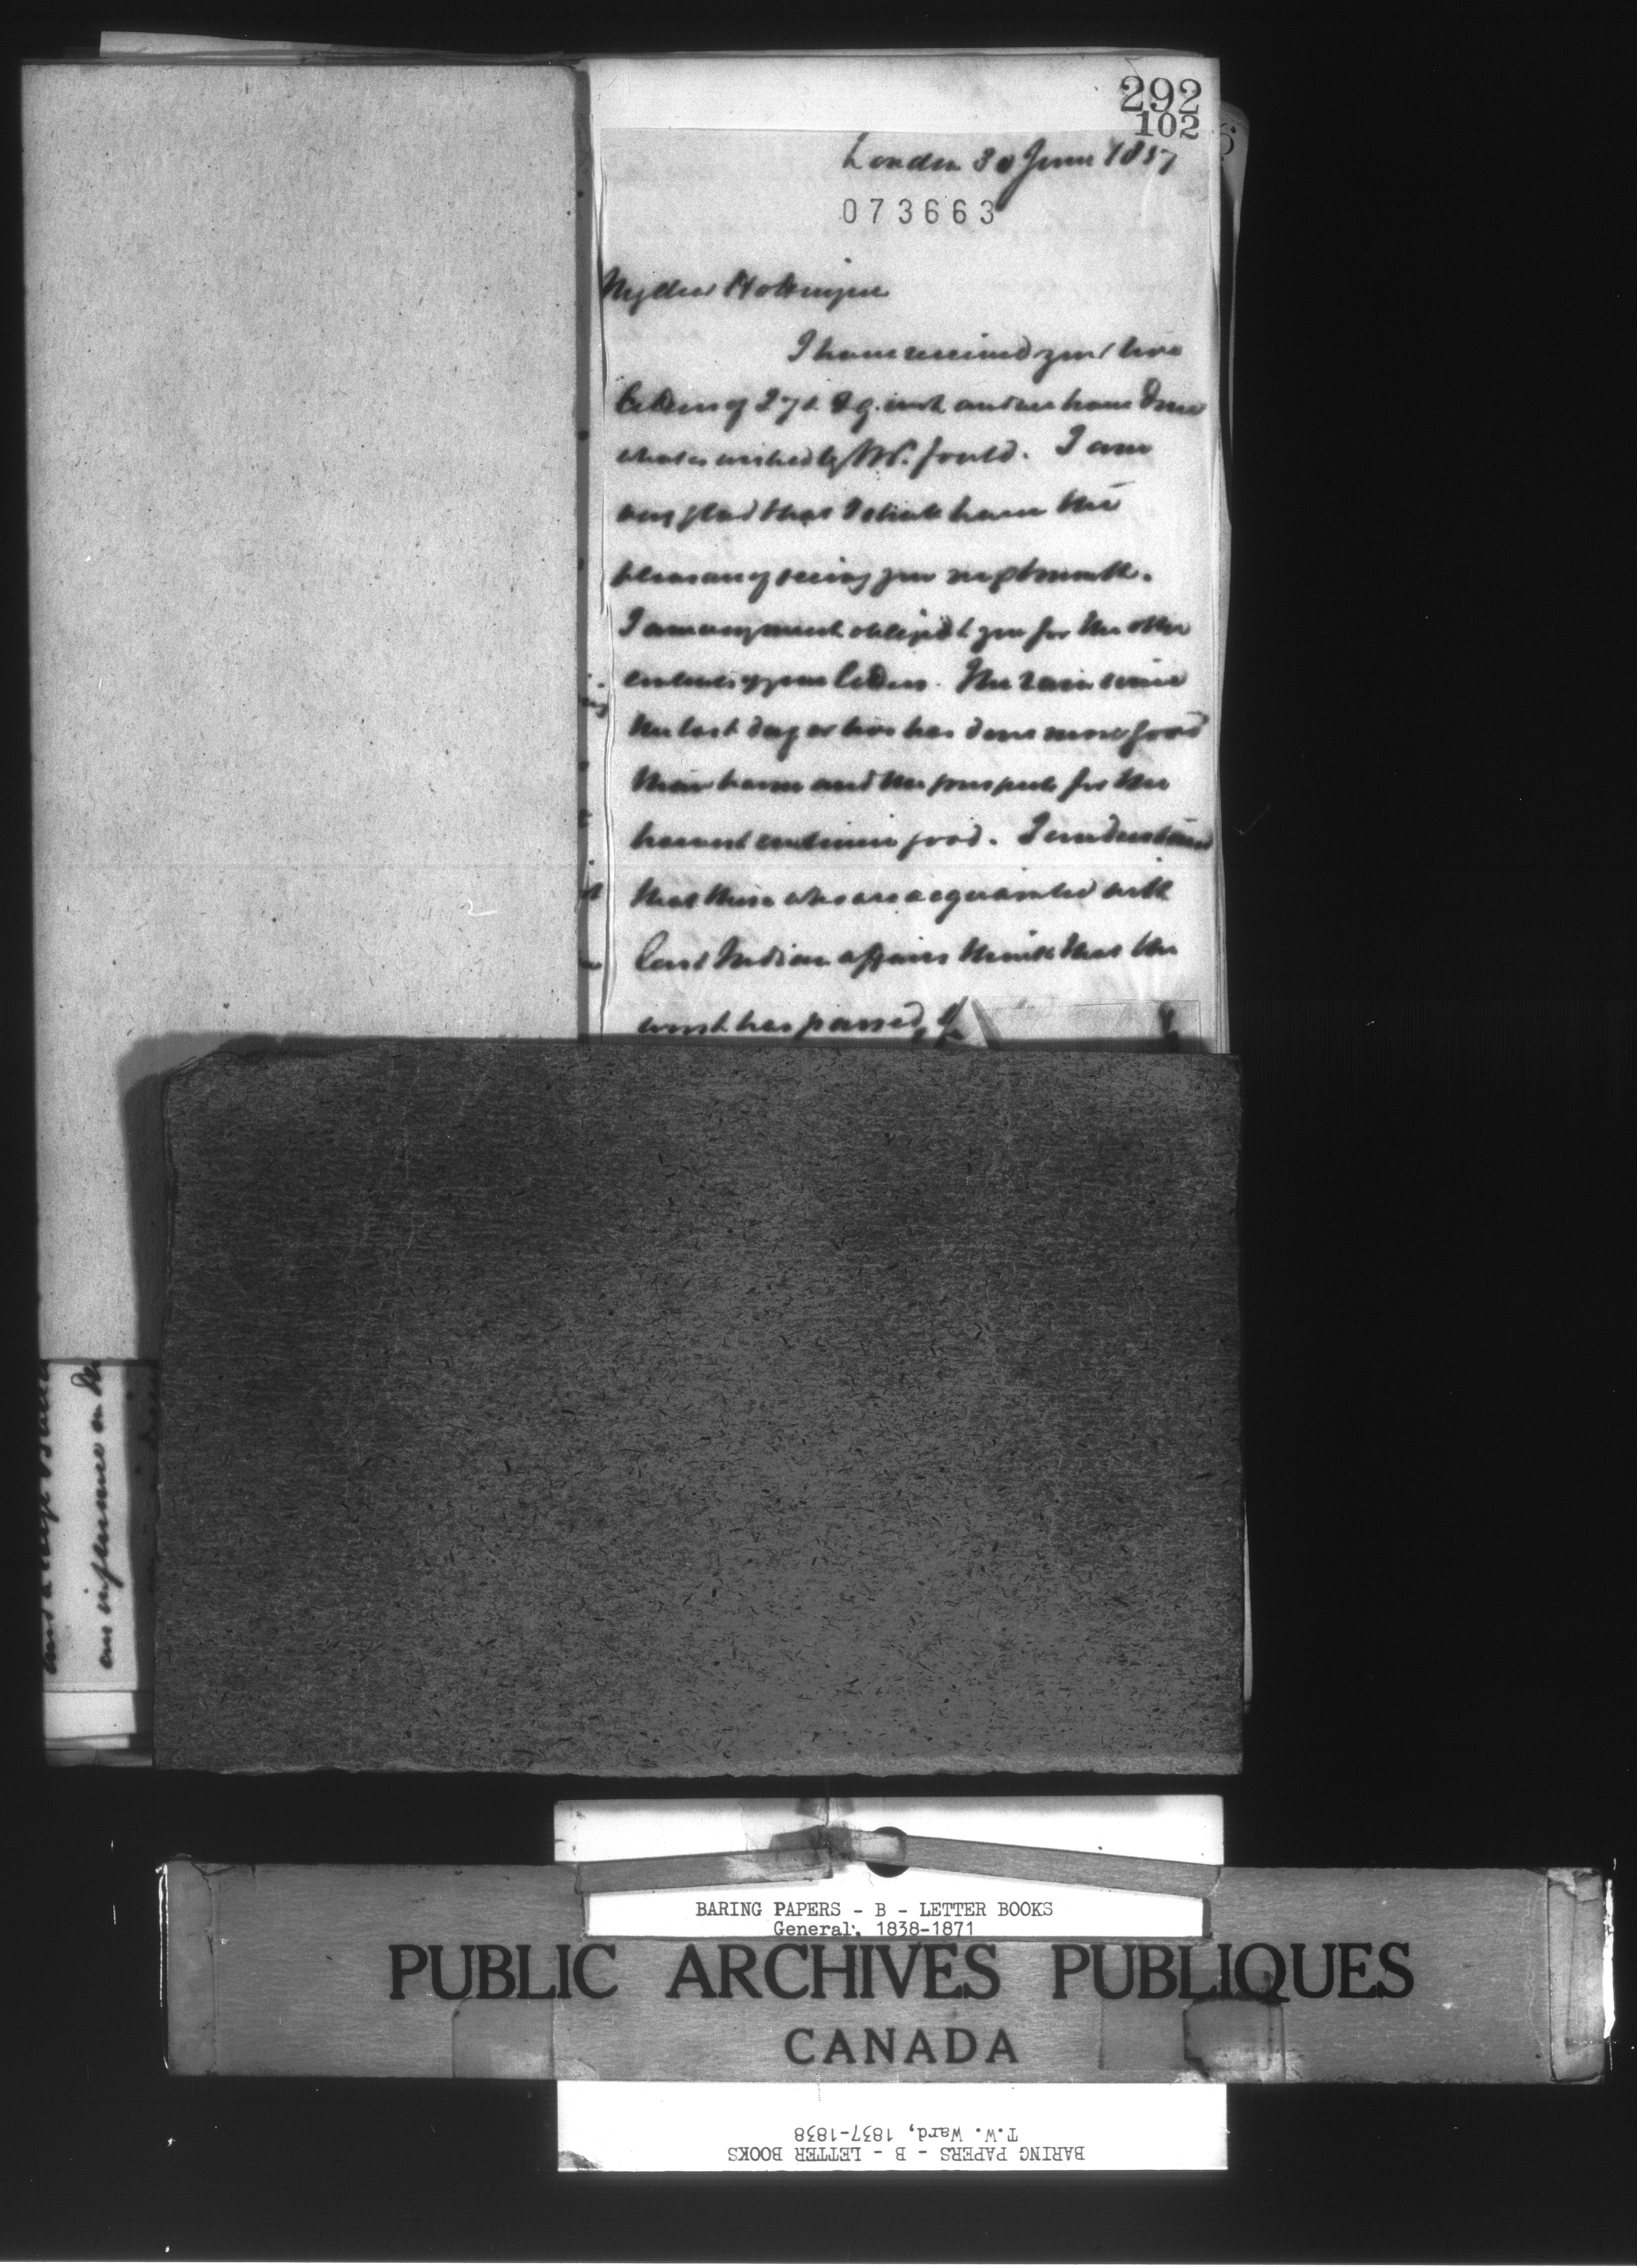 292
102
London 30 June 1857
073663
My dear Hottinguer
I have received your two
letters of 27 & 29. inst and we have done
what is wished by Mr. Fould. I am
very glad that I shall have the
pleasure of seeing you next month.
I am very much obliged to you for the other
contents of your letters. The rain since
the last day or two has done more good
than harm and the prospects for the
harvest continue good. I understand
that those who are acquainted with
East Indian affairs think that the
worst has passed
an influence on the
BARING PAPERS - B - LETTER BOOKS
General, 1838-1871
PUBLIC ARCHIVES PUBLIQUES
CANADA
BARING PAPERS - B - LETTER BOOKS
T.W. Ward, 1837-1838